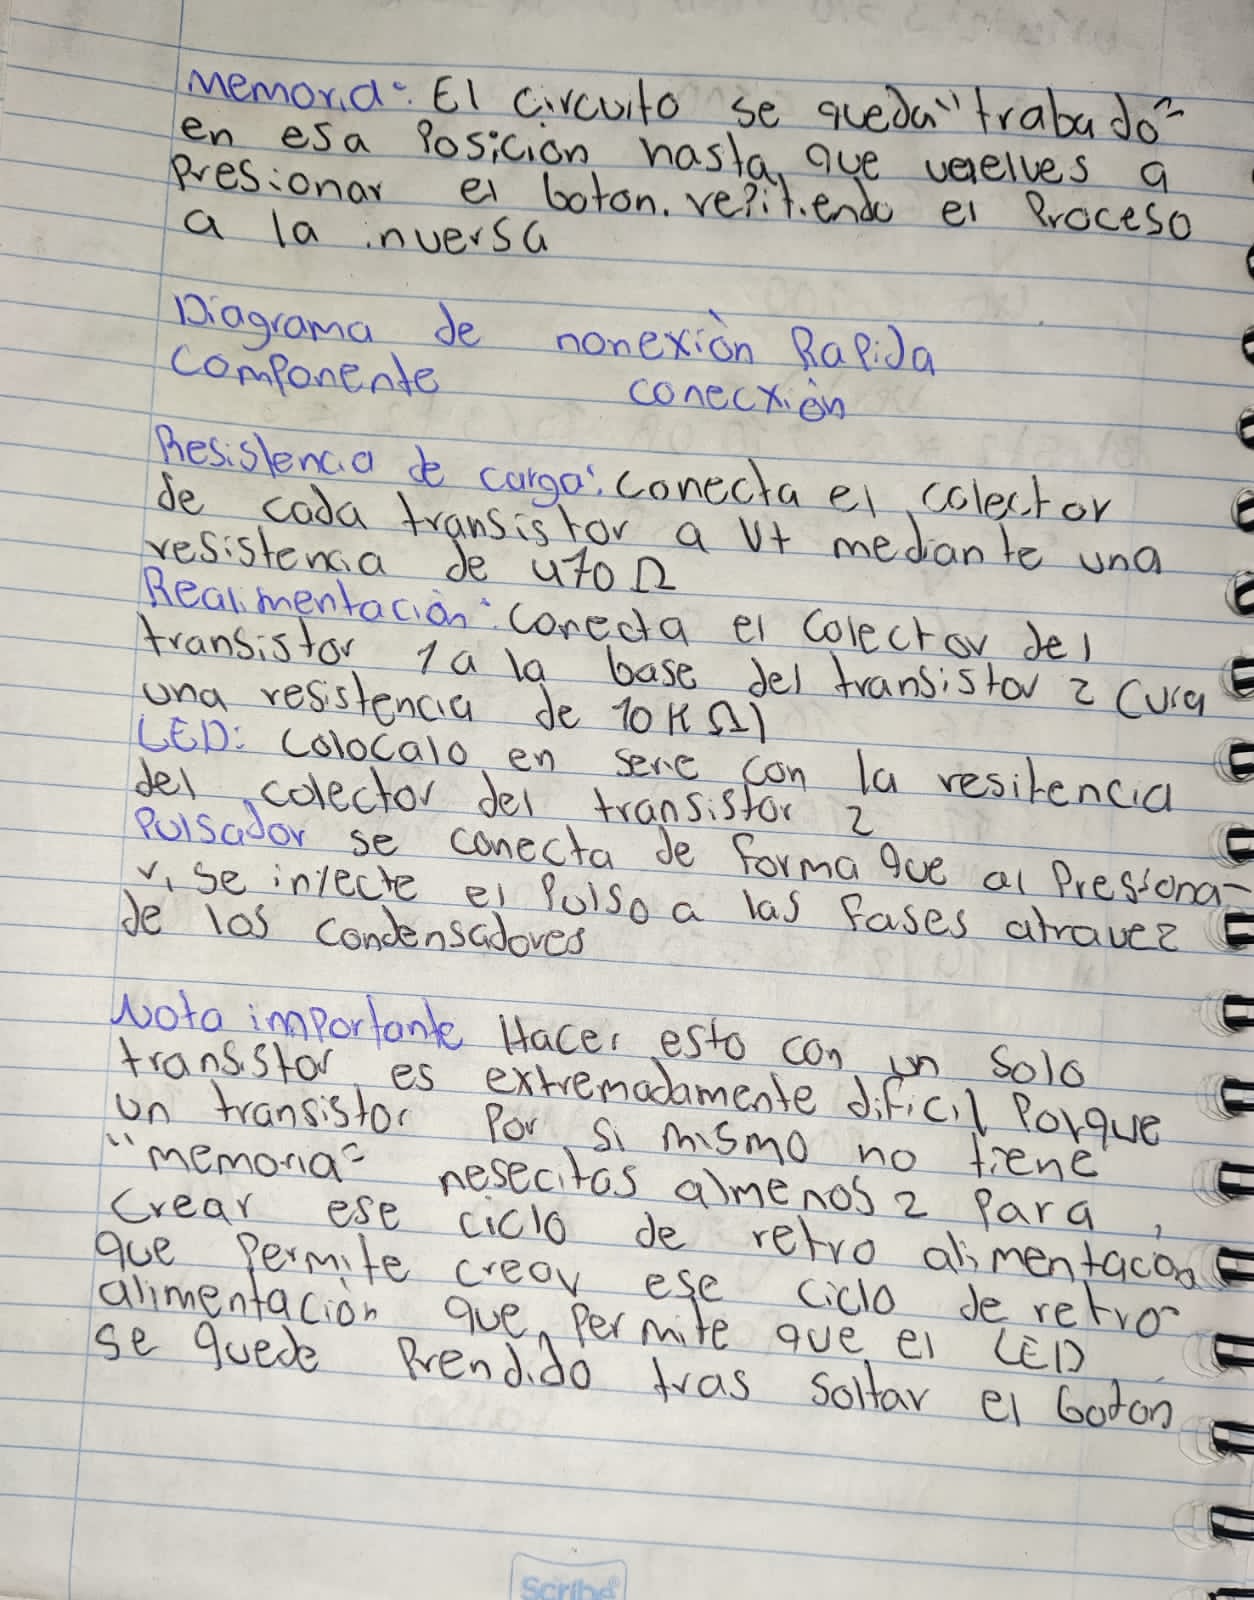 Memoria: El circuito se queda "trabado"
en esa Posición hasta que vuelves a
Presionar el boton. repitiendo el Proceso
a la inversa
Diagrama de nonexión Rapida
Componente conecxión
Resistencia de carga: conecta el colector
de cada transistor a V+ mediante una
resistencia de 470 Ω
Realimentación: conecta el colector del
transistor 1 a la base del transistor 2 (Vía
una resistencia de 10 K Ω)
LED: colocalo en serie con la resitencia
del colector del transistor 2
Pulsador se conecta de forma que al Presiona-
r, se inyecte el Pulso a las fases atravez
de los condensadores
Nota importante Hacer esto con un solo
transistor es extremadamente dificil Porque
un transistor Por si mismo no tiene
"memoria" nesecitas almenos 2 Para,
Crear ese ciclo de retro alimentacion
que Permite crear ese ciclo de retro-
alimentación que Permite que el LED
se quede Prendido tras soltar el boton
Scribe